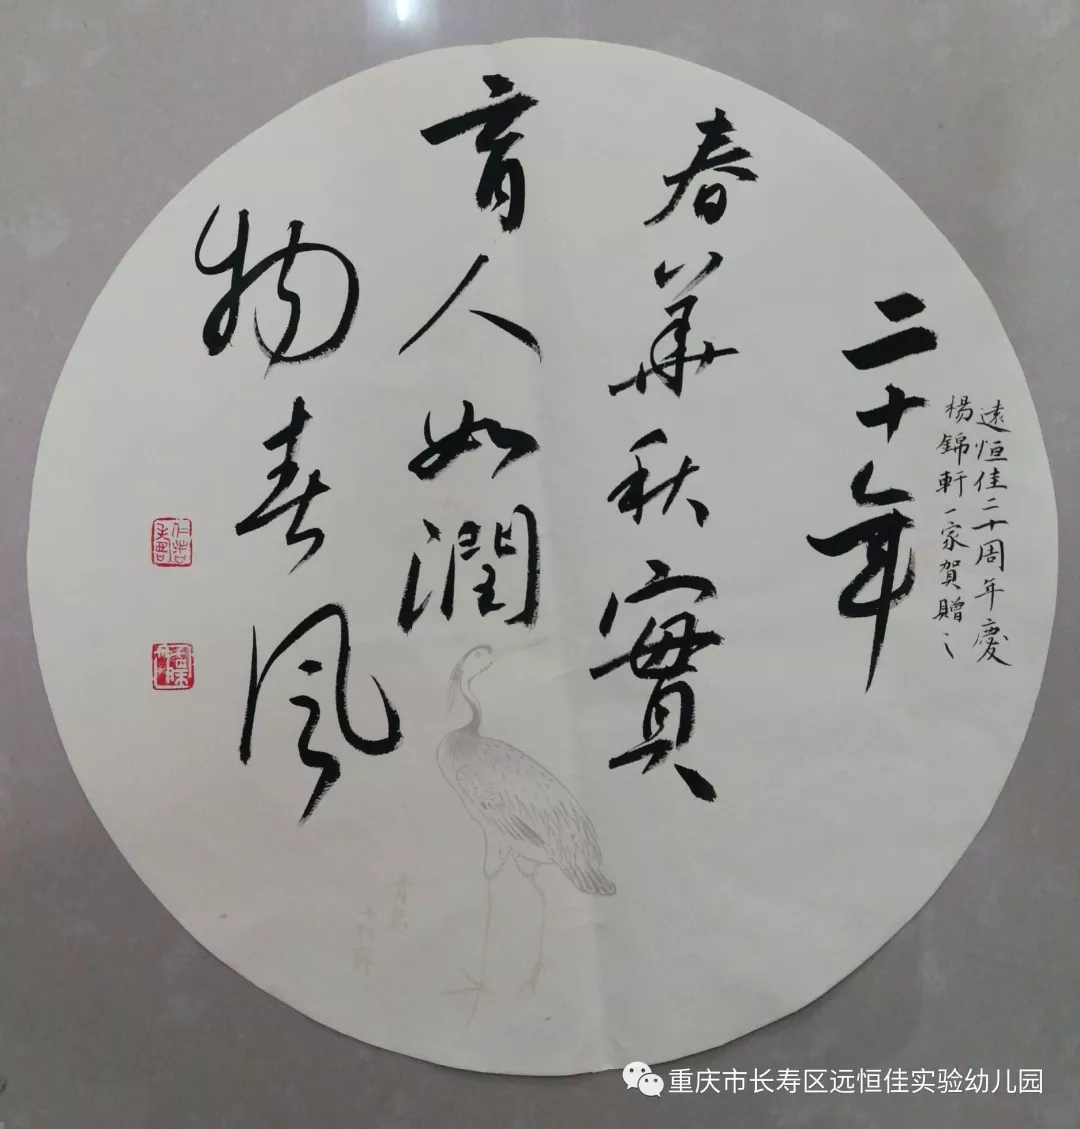 遠恒佳二十周年慶
楊錦軒一家賀贈
二十年
春華秋實
育人如潤
物春風
重庆市长寿区远恒佳实验幼儿园